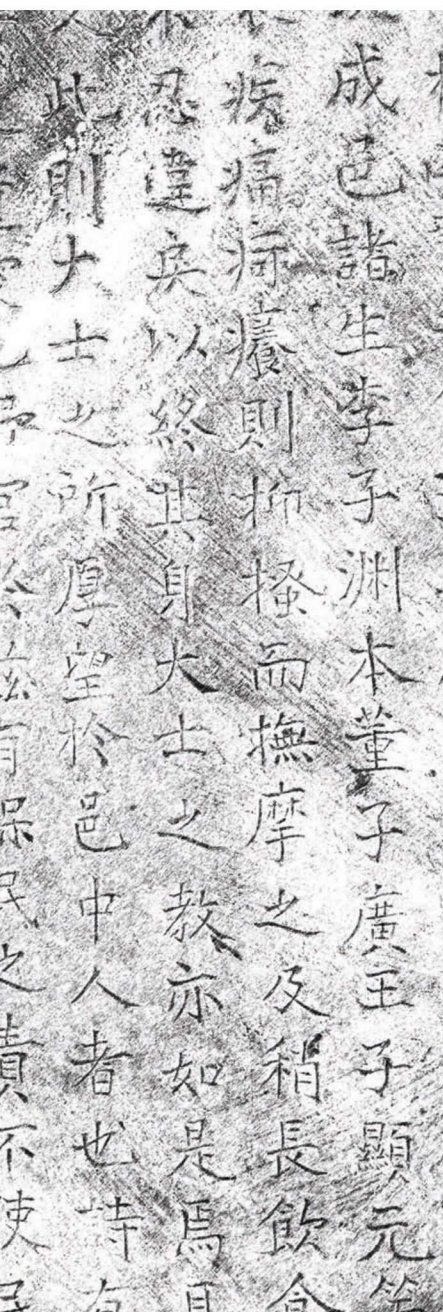 成邑諸生李子渊本董子廣王子顯元
疾痛疴癢則抑搔而撫摩之及稍長飲食
忍違矣以終其身大士之教亦如是焉
此則大士之所厚望於邑中人者也詩有
於茲有保民之責不使民